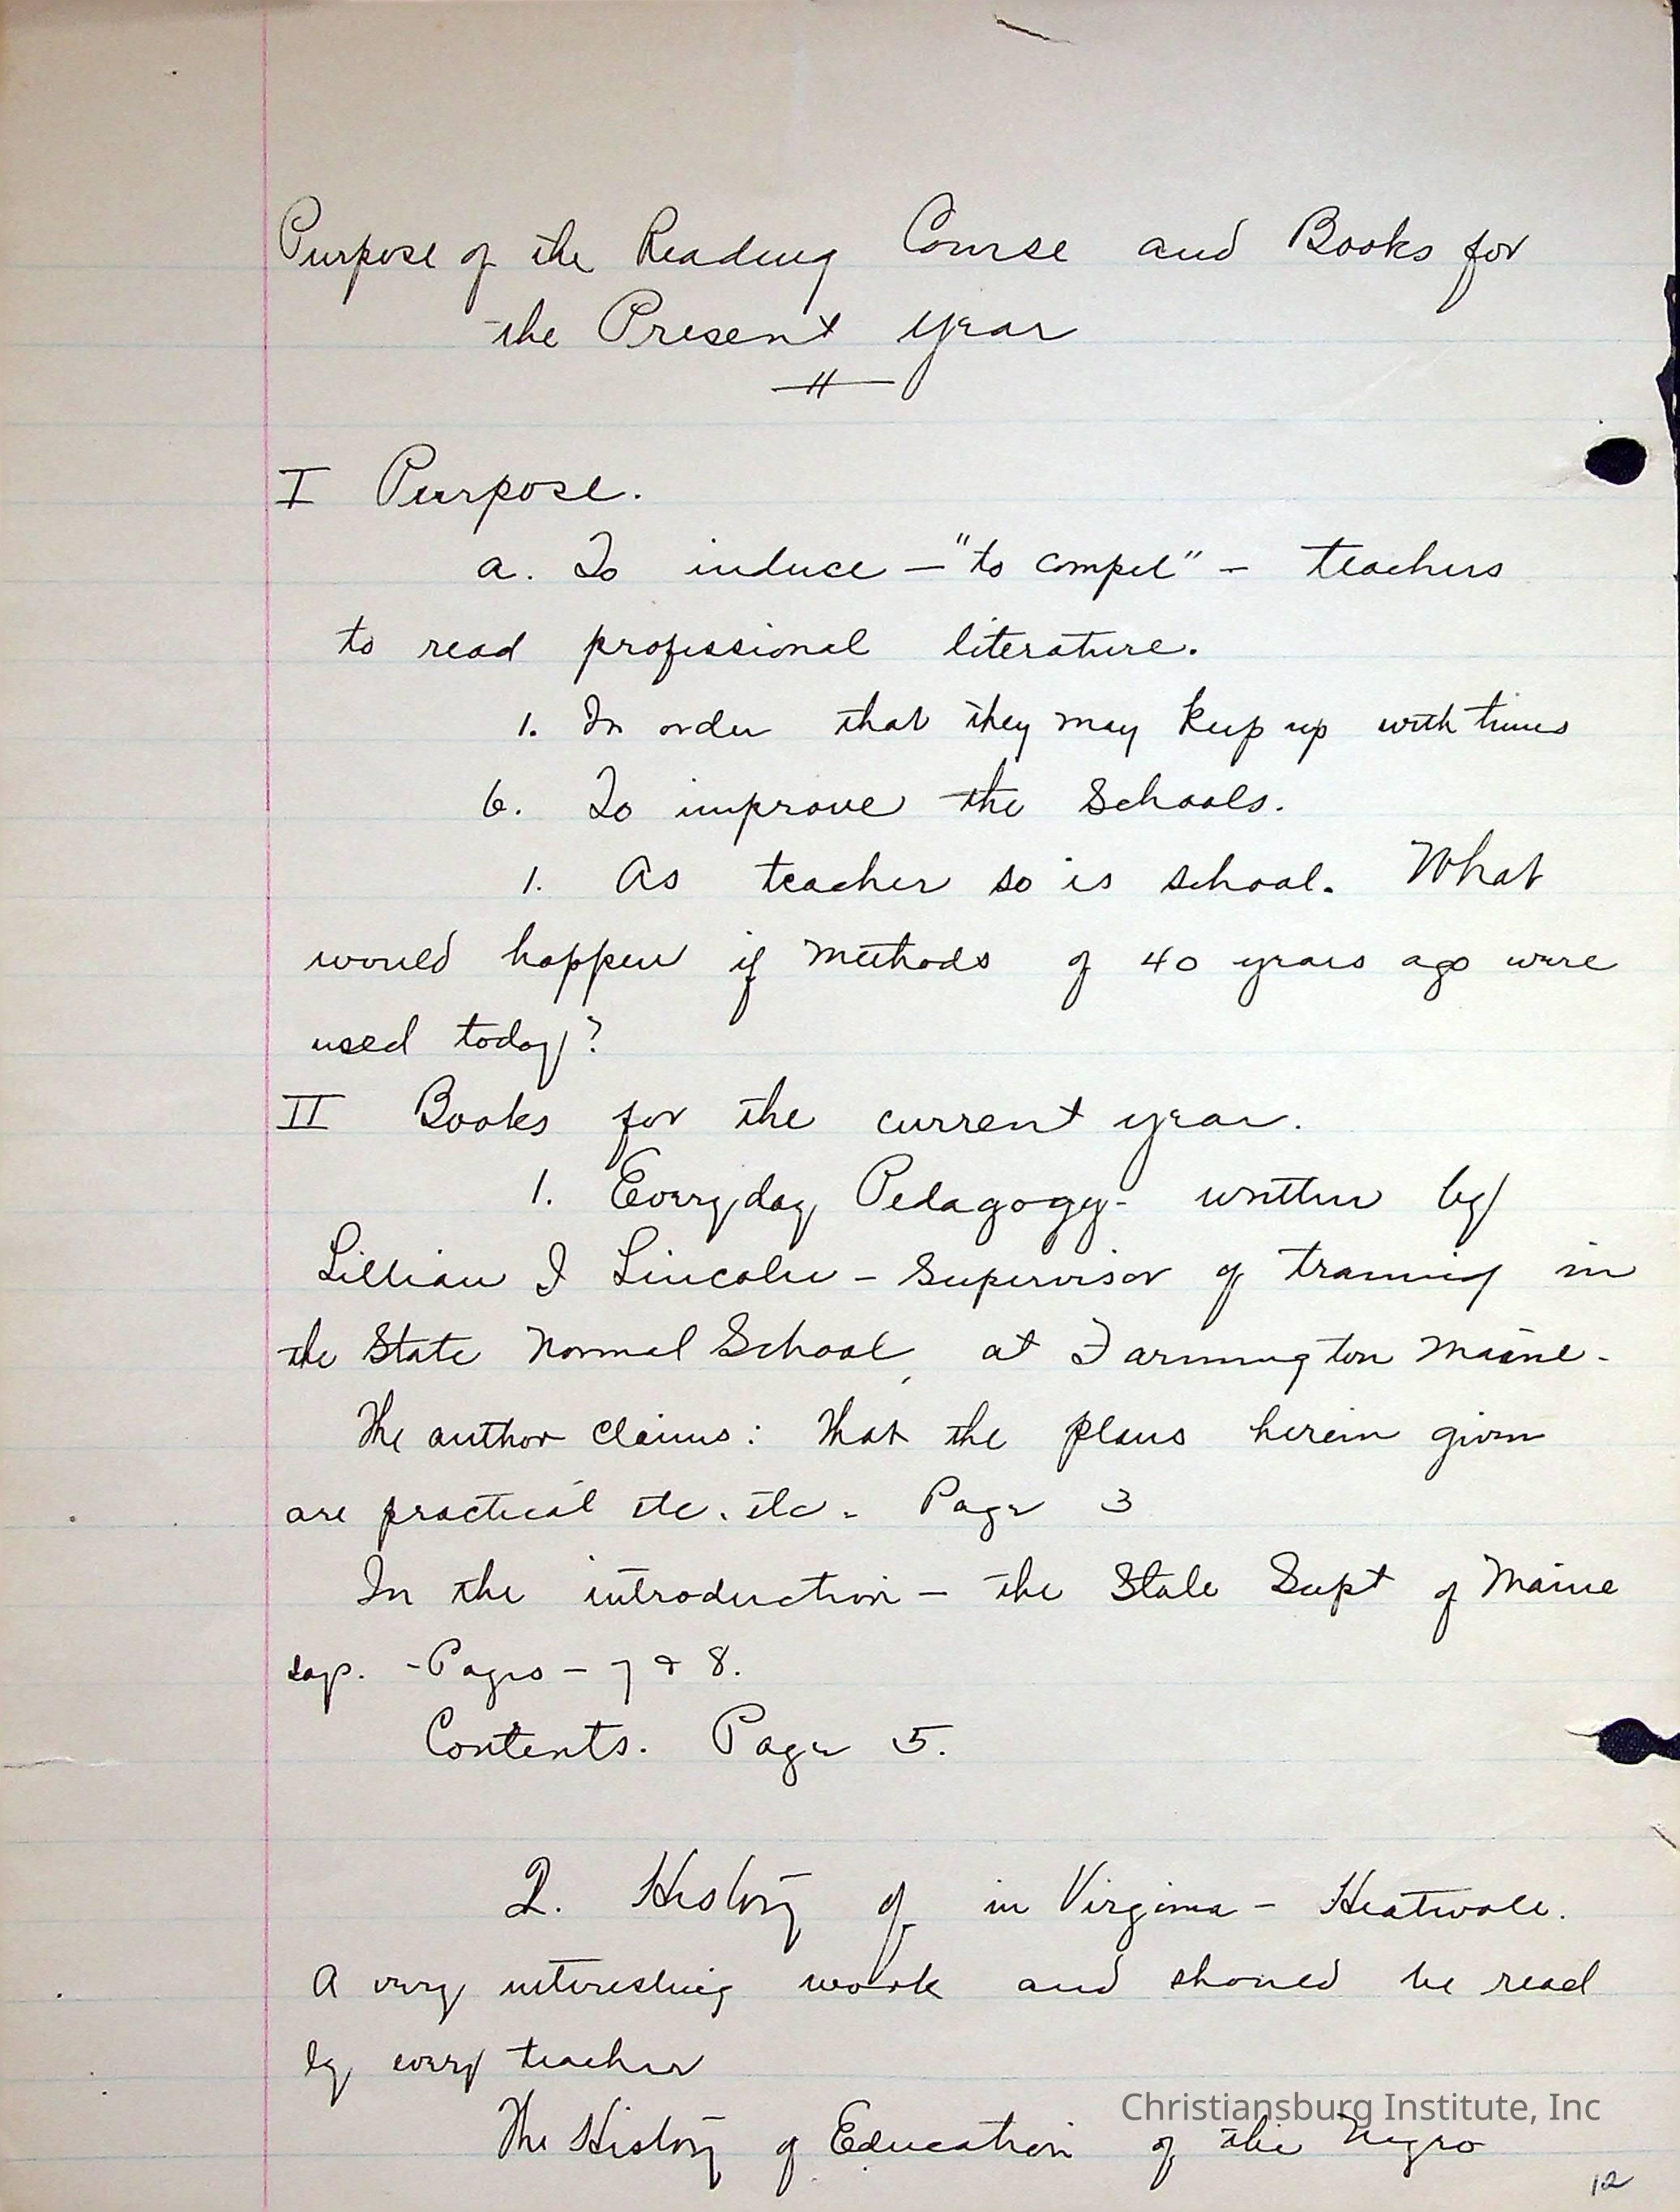 Purpose of the Reading Course and Books for
the Present year
I Purpose.
a. To induce — "to compel" — teachers
to read professional literature.
1. In order that they may keep up with times
b. To improve the Schools.
1. As teacher so is school. What
would happen if methods of 40 years ago were
used today?
II Books for the current year.
1. Everyday Pedagogy - written by
Lillian I Lincoln - Supervisor of training in
the State Normal School, at Farmington Maine.
The author claims: that the plans herein given
are practical etc. etc. Page 3
In the introduction — the State Supt of Maine
say. - Pages - 7 & 8.
Contents. Page 5.
2. History of in Virginia - Heatwole.
A very interesting work and should be read
by every teacher
The History of Education of the Negro
Christiansburg Institute, Inc
12